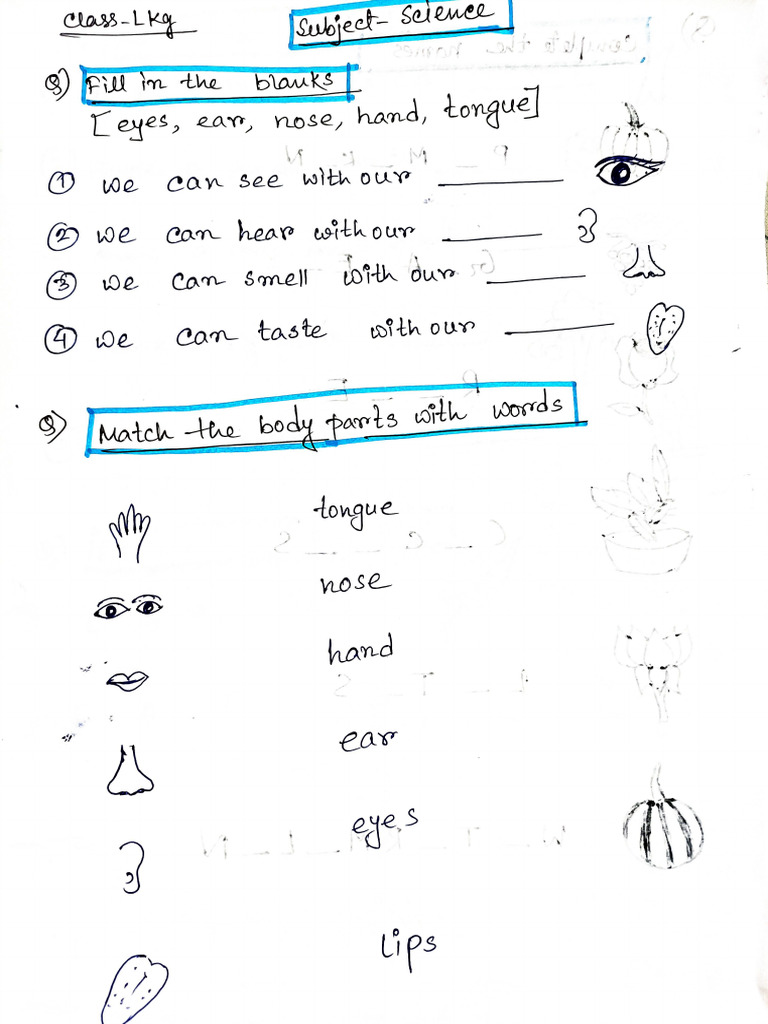 Class-Lkg
Subject-Science
Q) Fill in the blanks
[eyes, ear, nose, hand, tongue]
① we can see with our ________
② we can hear with our ________
③ we can smell with our ________
④ we can taste with our ________
Q) Match the body parts with words
tongue
nose
hand
ear
eyes
Lips